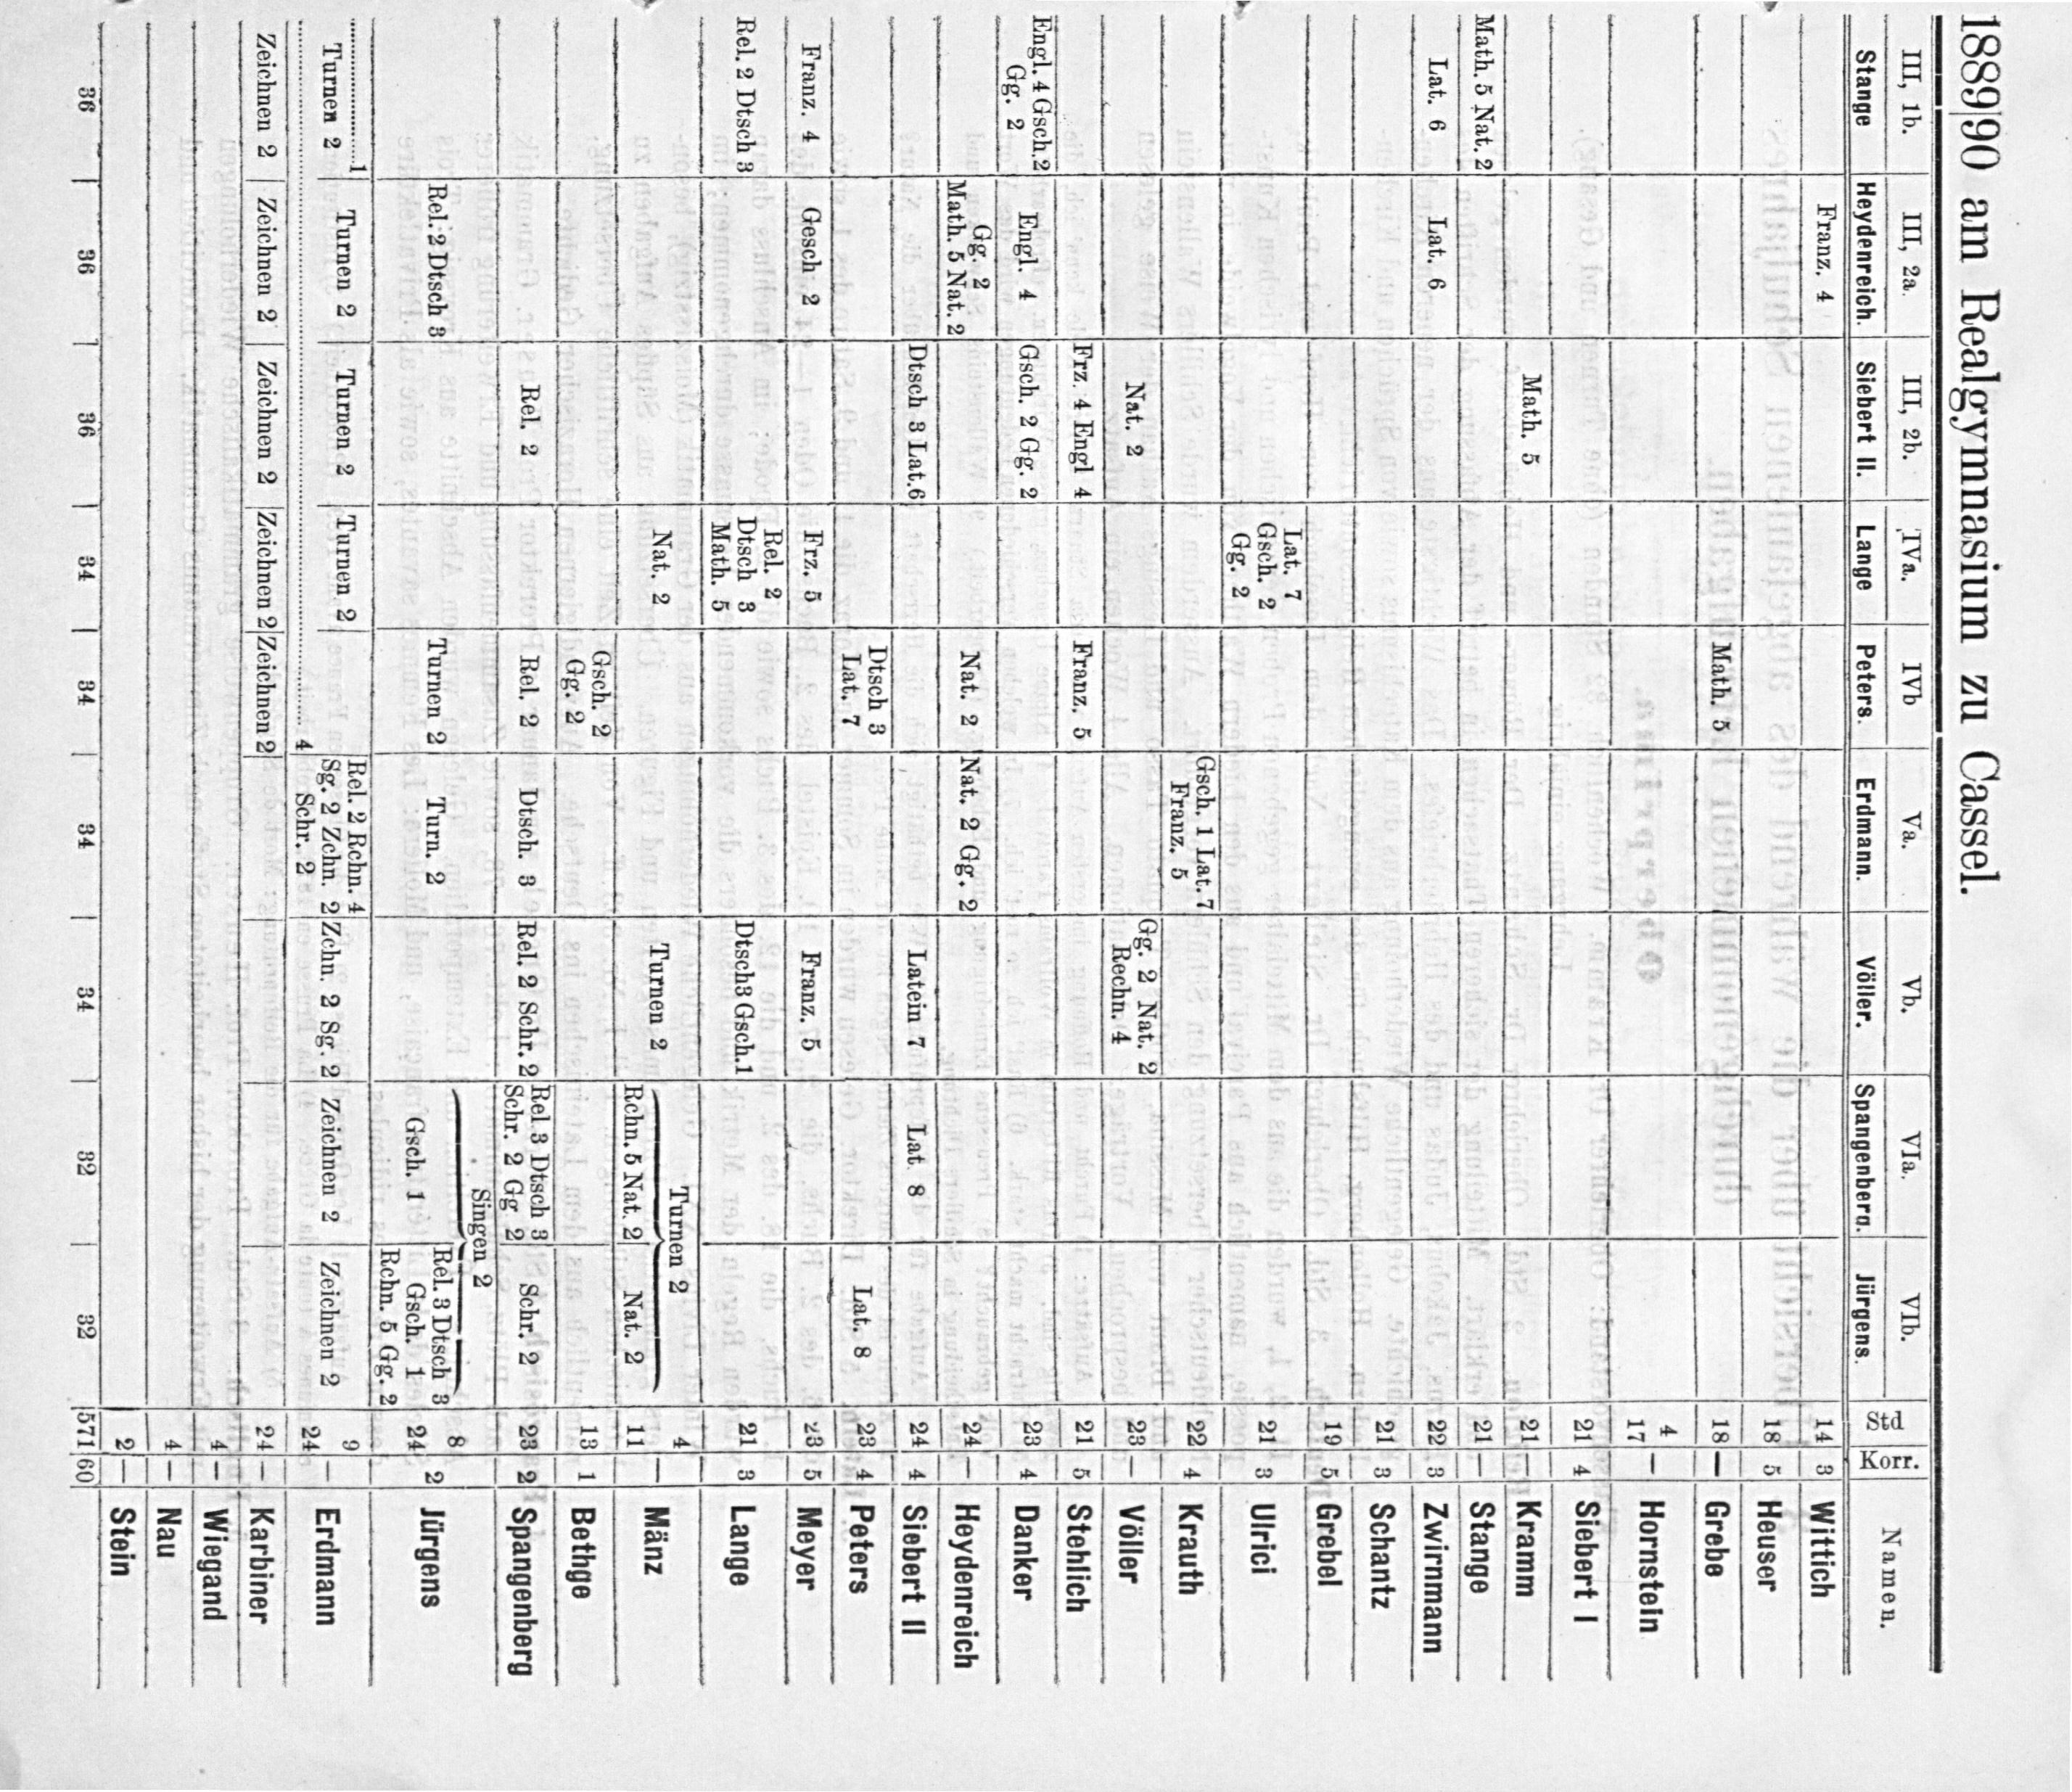 1889|90 am Realgymnasium zu Cassel.
III, 1b. III, 2a. III, 2b. IVa. IVb Va. Vb. VIa. VIb. Std Korr. Namen.
Stange Heydenreich. Siebert II. Lange Peters. Erdmann. Völler. Spangenberg. Jürgens.
Franz. 4 14 3 Wittich
18 5 Heuser
Math. 5 18 — Grebe
4
17 — Hornstein
21 4 Siebert I
Math. 5 21 — Kramm
Math. 5 Nat. 2 21 — Stange
Lat. 6 Lat. 6 22 3 Zwirnmann
21 3 Schantz
19 5 Grebel
Lat. 7
Gsch. 2 21 3 Ulrici
Gg. 2
Gsch. 1 Lat. 7
Franz. 5 22 4 Krauth
Gg. 2 Nat. 2
Nat. 2 Rechn. 4 23 — Völler
Frz. 4 Engl 4 Franz. 5 21 5 Stehlich
Engl. 4 Gsch. 2 Engl. 4 Gsch. 2 Gg. 2 24 4 Danker
Gg. 2
Gg. 2
Math. 5 Nat. 2 Nat. 2 Nat. 2 Gg. 2 24 — Heydenreich
Dtsch 3 Lat. 6 Latein 7 Lat. 8 24 4 Siebert II
Dtsch 3
Lat. 7 Lat. 8 23 4 Peters
Franz. 4 Gesch 2 Frz. 5 Franz. 5 23 5 Meyer
Rel. 2
Rel. 2 Dtsch 3 Dtsch 3 Dtsch3 Gsch. 1 21 3 Lange
Math. 5
Turnen 2 4
Nat. 2 Turnen 2 Rchn. 5 Nat. 2 Nat. 2 11 — Mänz
Gsch. 2
Gg. 2 13 1 Bethge
Rel. 2 Rel. 2 Dtsch. 3 Rel. 2 Schr. 2 Rel. 3 Dtsch 3 Schr. 2 23 2 Spangenberg
Schr. 2 Gg 2
Singen 2
Rel. 2 Dtsch 3 Turnen 2 Turn. 2 Gsch. 1 Rel. 3 Dtsch 3 8
Gsch. 1 24 2 Jürgens
Rchn. 5 Gg. 2
1
Turnen 2 Turnen 2 Turnen 2 Turnen 2 Rel. 2 Rchn. 4 9
Sg. 2 Zchn. 2 Zchn. 2 Sg. 2 Zeichnen 2 Zeichnen 2 24 — Erdmann
4 Schr. 2
Zeichnen 2 Zeichnen 2 Zeichnen 2 Zeichnen 2 Zeichnen 2 24 — Karbiner
4 — Wiegand
4 — Nau
2 — Stein
36 36 36 34 34 34 34 32 32 571 60